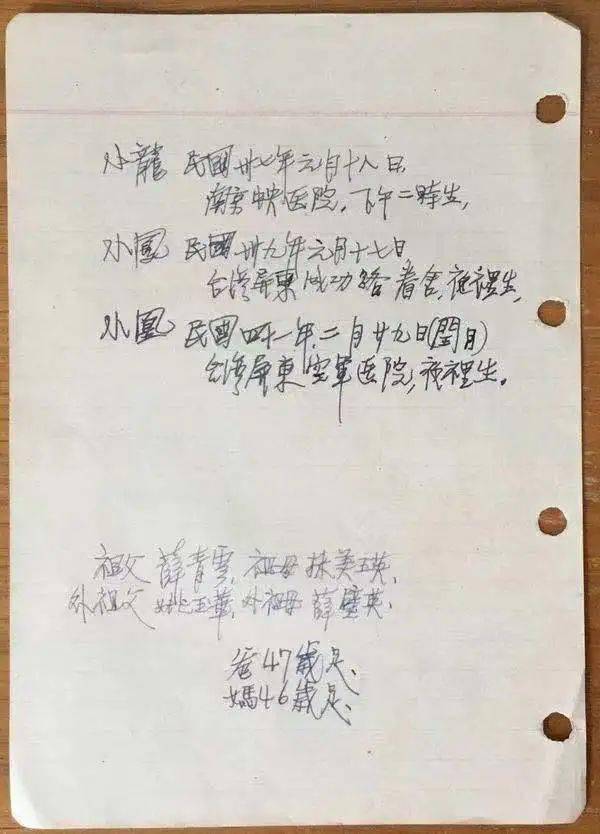 小龍 民國卅七年元月十八日,
南京中央医院,下午二時生,
小鳳 民國卅九年元月十七日
台湾屏東成功路眷舍,夜裡生,
小凰 民國四十一年,二月廿九日(閏月)
台湾屏東空軍医院,夜裡生。
祖父 薛青雲,祖母 美英,
外祖父 姚玉華,外祖母 薛瓊英,
爸47歲足、
媽46歲足、